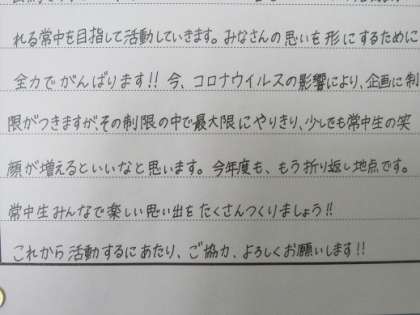 れる常中を目指して活動していきます。みなさんの思いを形にするために
全力でがんばります!! 今、コロナウイルスの影響により、企画に制
限がつきますが、その制限の中で最大限にやりきり、少しでも常中生の笑
顔が増えるといいなと思います。今年度も、もう折り返し地点です。
常中生みんなで楽しい思い出をたくさんつくりましょう!!
これから活動するにあたり、ご協力、よろしくお願いします!!